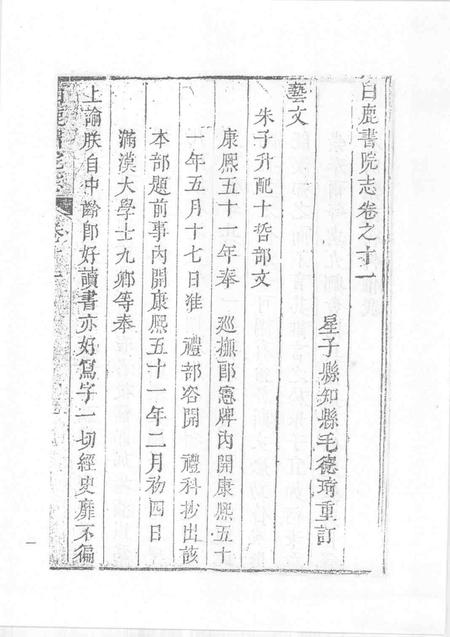 白鹿書院志卷之十一
星子縣知縣毛德琦重訂
藝文
朱子升配十哲部文
康熙五十一年奉　巡撫郎憲牌內開康熙五十
一年五月十七日准　禮部咨開　禮科抄出該
本部題前事內開康熙五十一年二月初四日
滿漢大學士九卿等奉
上諭朕自中齡卽好讀書亦好寫字一切經史靡不徧